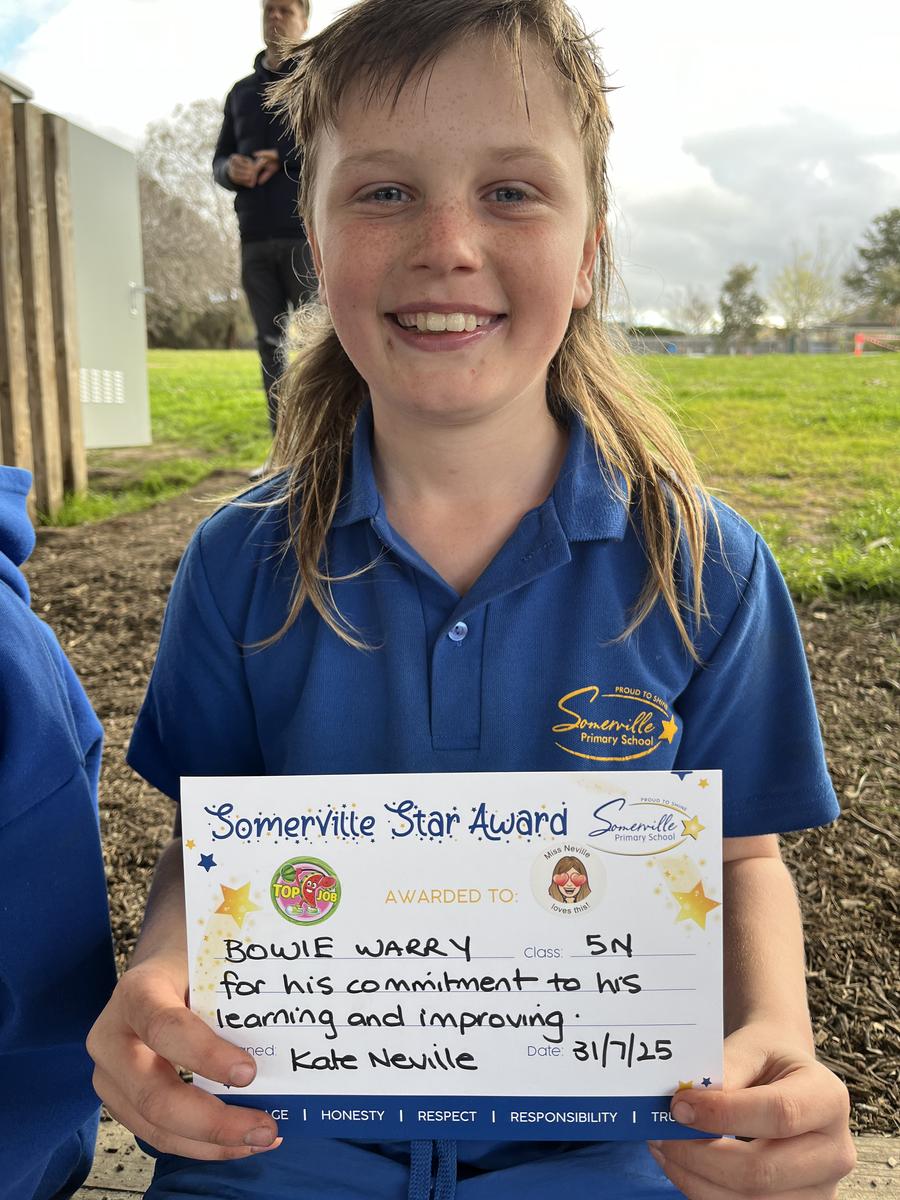 PROUD TO SHINE
Somerville
Primary School
Somerville Star Award
PROUD TO SHINE
Somerville
Primary School
TOP JOB
AWARDED TO:
Miss Neville
loves this!
BOWIE WARRY Class: 5N
for his commitment to his
learning and improving.
Kate Neville Date: 31/7/25
HONESTY | RESPECT | RESPONSIBILITY |